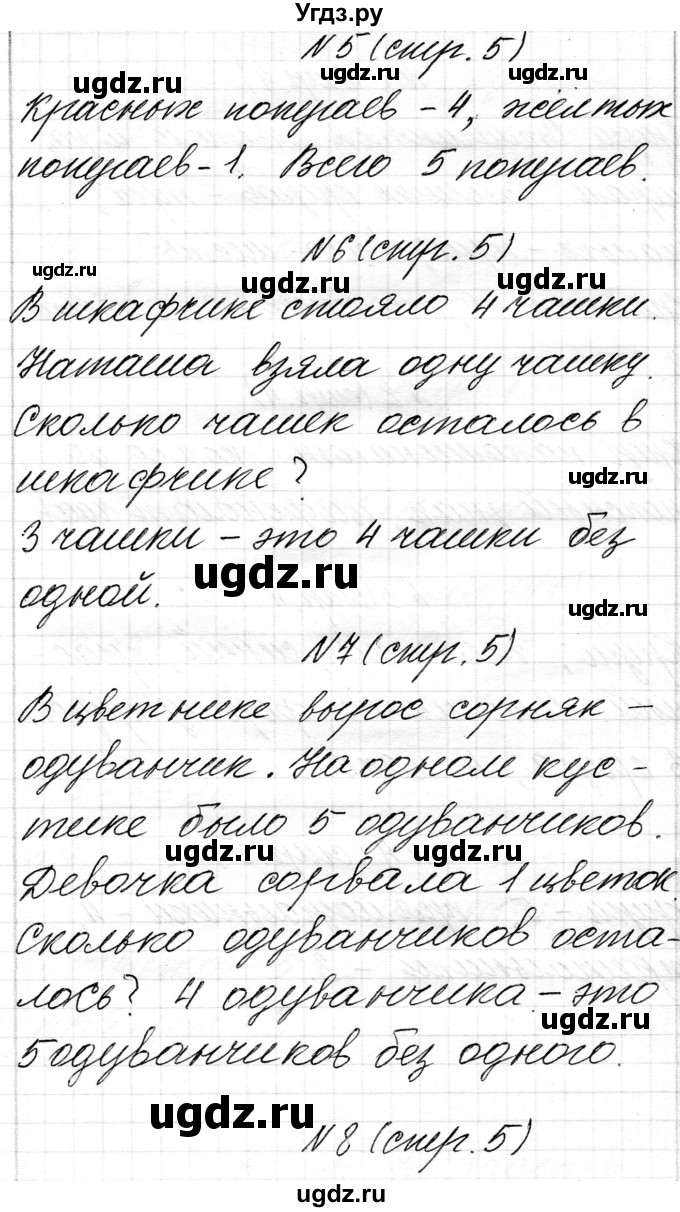 Угдз.ру
N5 (стр. 5)
ugdz.ru ugdz.ru
Красных попугаев - 4, жёлтых
попугаев - 1. Всего 5 попугаев.
N6 (стр. 5)
ugdz.ru ugdz.ru ugdz.ru
В шкафчике стояло 4 чашки.
Наташа взяла одну чашку.
Сколько чашек осталось в
шкафчике?
ugdz.ru
3 чашки - это 4 чашки без
ugdz.ru
одной.
ugdz.ru
N7 (стр. 5)
В цветнике вырос сорняк -
одуванчик. На одном кус-
тике было 5 одуванчиков.
ugdz.ru ugdz.ru
Девочка сорвала 1 цветок.
Сколько одуванчиков оста-
лось? 4 одуванчика - это
ugdz.ru
5 одуванчиков без одного.
ugdz.ru
N8 (стр. 5)
ugdz.ru